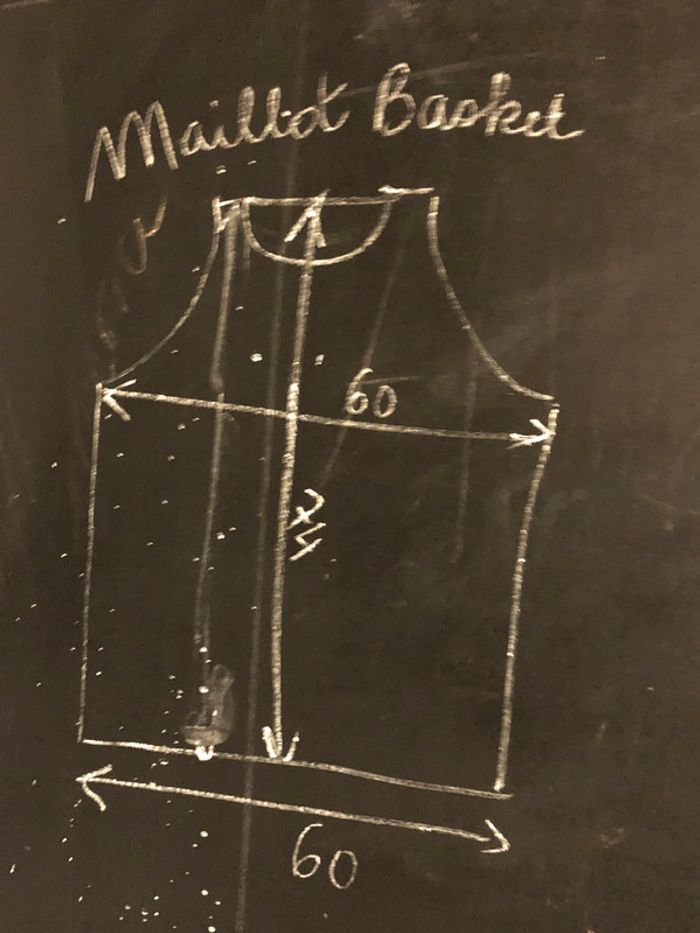 Maillot Basket
60
60